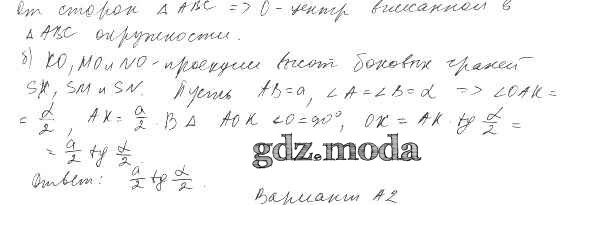 от сторон △ ABC => O - центр вписанной в
△ ABC окружности.
б) KO, MO и NO - проекции высот боковых граней
SK, SM и SN. Пусть AB=a, ∠A=∠B=α => ∠OAK=
= α/2, AK = a/2. В △ AOK ∠O=90°, OK = AK · tg α/2 =
= a/2 tg α/2.
gdz.moda
Ответ: a/2 tg α/2.
Вариант А2